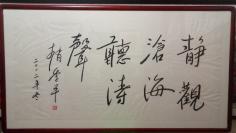 静觀
滄海
聽濤
聲
二〇一二年冬